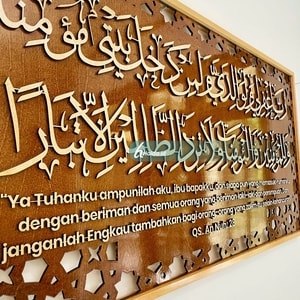 رب اغفر لي ولوالدي ولمن دخل بيتي مؤمنا
وللمؤمنين والمؤمنات ولا تزد الظالمين إلا تبارا
"Ya Tuhanku ampunilah aku, ibu bapakku, dan siapa pun yang
dengan beriman dan semua orang yang beriman laki-laki dan
janganlah Engkau tambahkan bagi orang-orang yang zalim itu selain
QS. An Nuh : 28